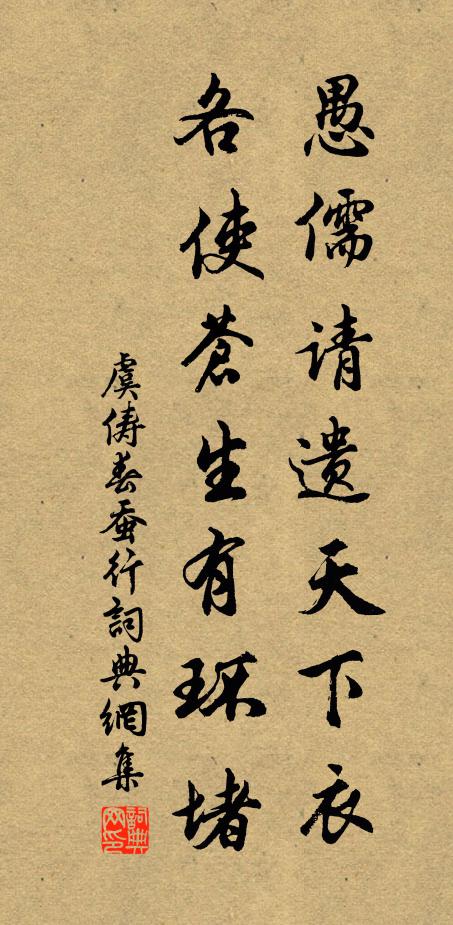 愚儒请遗天下衣
各使苍生有环堵
虞俦春蚕行词典網集
詞典网印